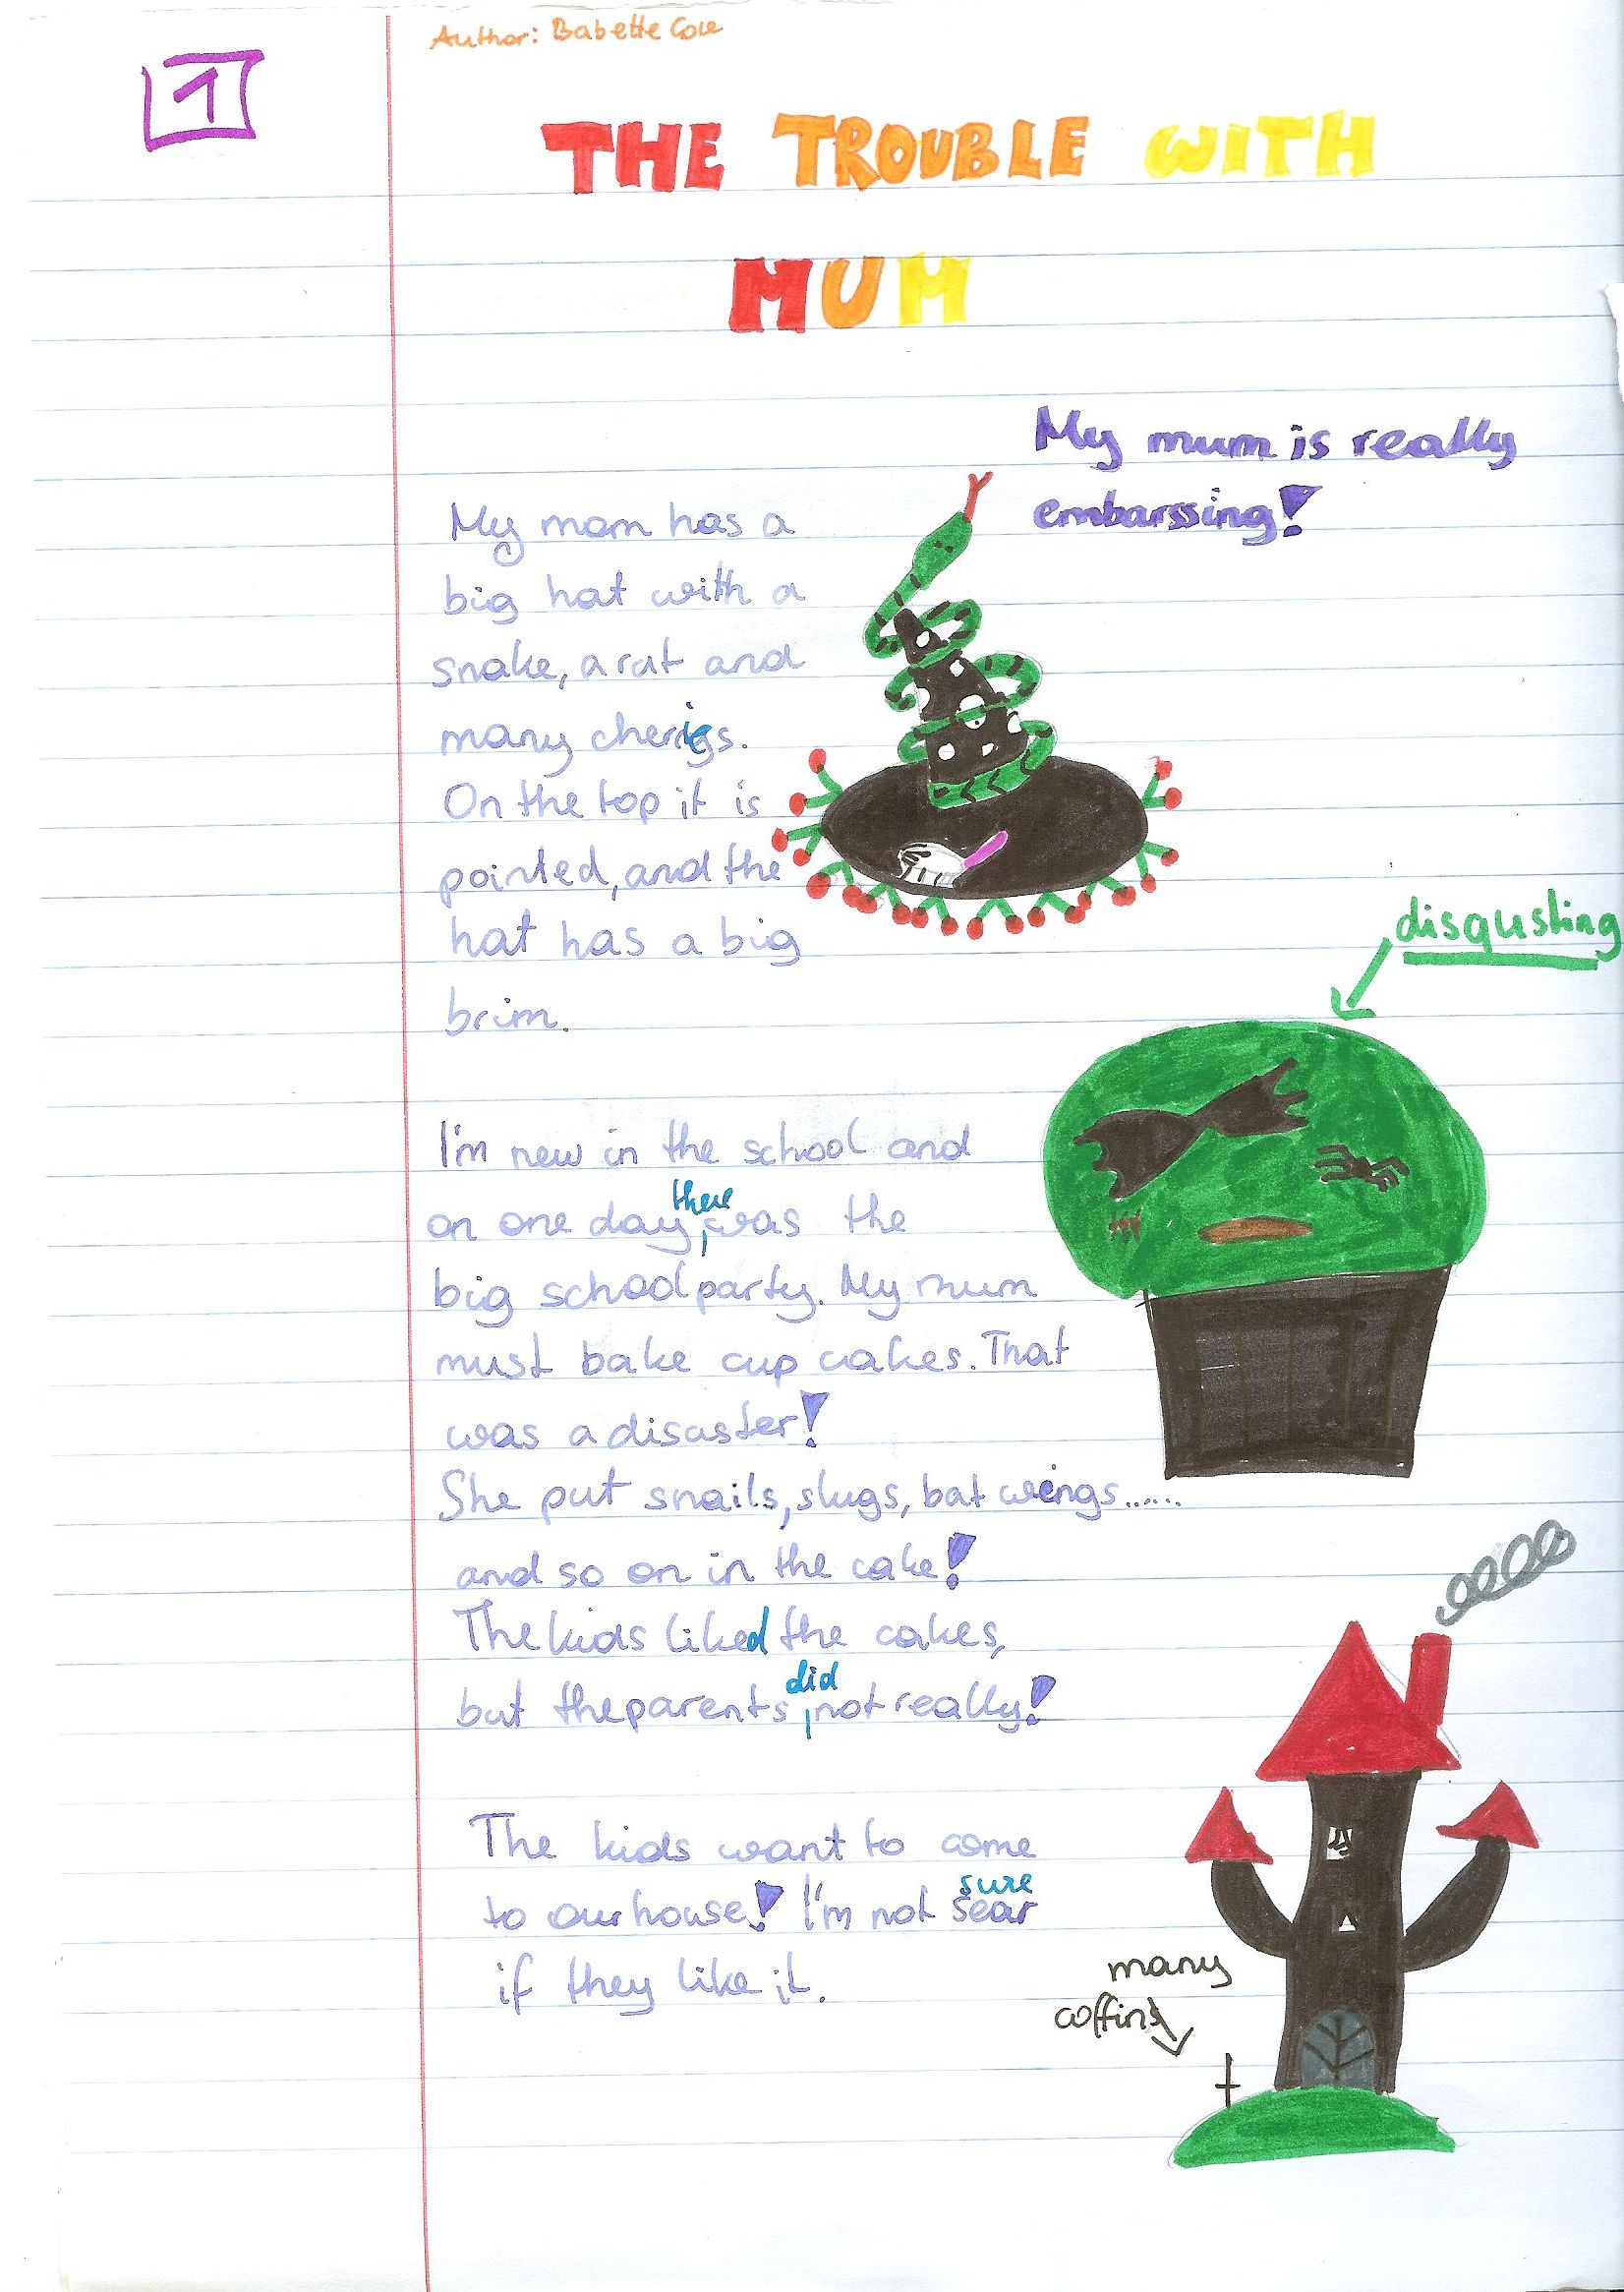 Author: Babette Cole
1
THE TROUBLE WITH
MUM
My mum is really
embarssing!
My mom has a
big hat with a
snake, a rat and
many cherries.
On the top it is
pointed, and the
hat has a big
brim.
disgusting
I'm new in the school and
on one day there was the
big schoolparty. My mum
must bake cup cakes. That
was a disaster!
She put snails, slugs, bat wings......
and so on in the cake!
The kids liked the cakes,
but the parents did not really!
The kids want to come
to our house! I'm not sear
sure
if they like it.
many
coffins